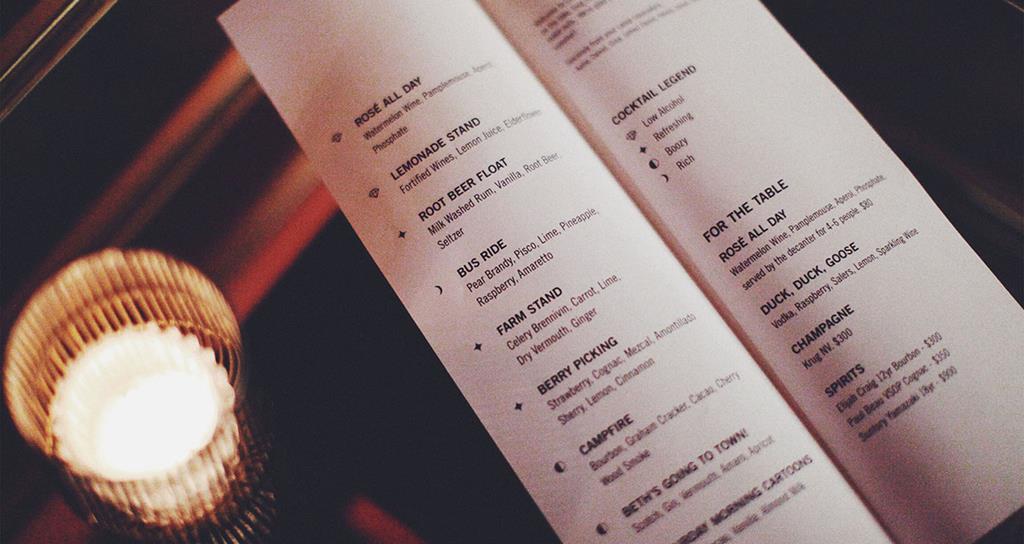 ROSÉ ALL DAY
Watermelon Wine, Pamplemouse, Aperol,
Phosphate
LEMONADE STAND
Fortified Wines, Lemon Juice, Elderflower
ROOT BEER FLOAT
Milk Washed Rum, Vanilla, Root Beer,
Seltzer
BUS RIDE
Pear Brandy, Pisco, Lime, Pineapple,
Raspberry, Amaretto
FARM STAND
Celery Brennivin, Carrot, Lime,
Dry Vermouth, Ginger
BERRY PICKING
Strawberry, Cognac, Mezcal, Amontillado
Sherry, Lemon, Cinnamon
CAMPFIRE
Bourbon, Graham Cracker, Cacao, Cherry
Wood Smoke
BETH'S GOING TO TOWN!
Scotch, Gin, Vermouth, Amaro, Apricot
MORNING CARTOONS
Vanilla, Almond Milk
COCKTAIL LEGEND
Low Alcohol
Refreshing
Boozy
Rich
FOR THE TABLE
ROSÉ ALL DAY
Watermelon Wine, Pamplemouse, Aperol, Phosphate,
served by the decanter for 4-6 people $80
DUCK, DUCK, GOOSE
Vodka, Raspberry, Salers, Lemon, Sparkling Wine
CHAMPAGNE
Krug NV. $300
SPIRITS
Elijah Craig 12yr Bourbon - $300
Paul Beau VSOP Cognac - $350
Suntory Yamazaki 18yr - $900